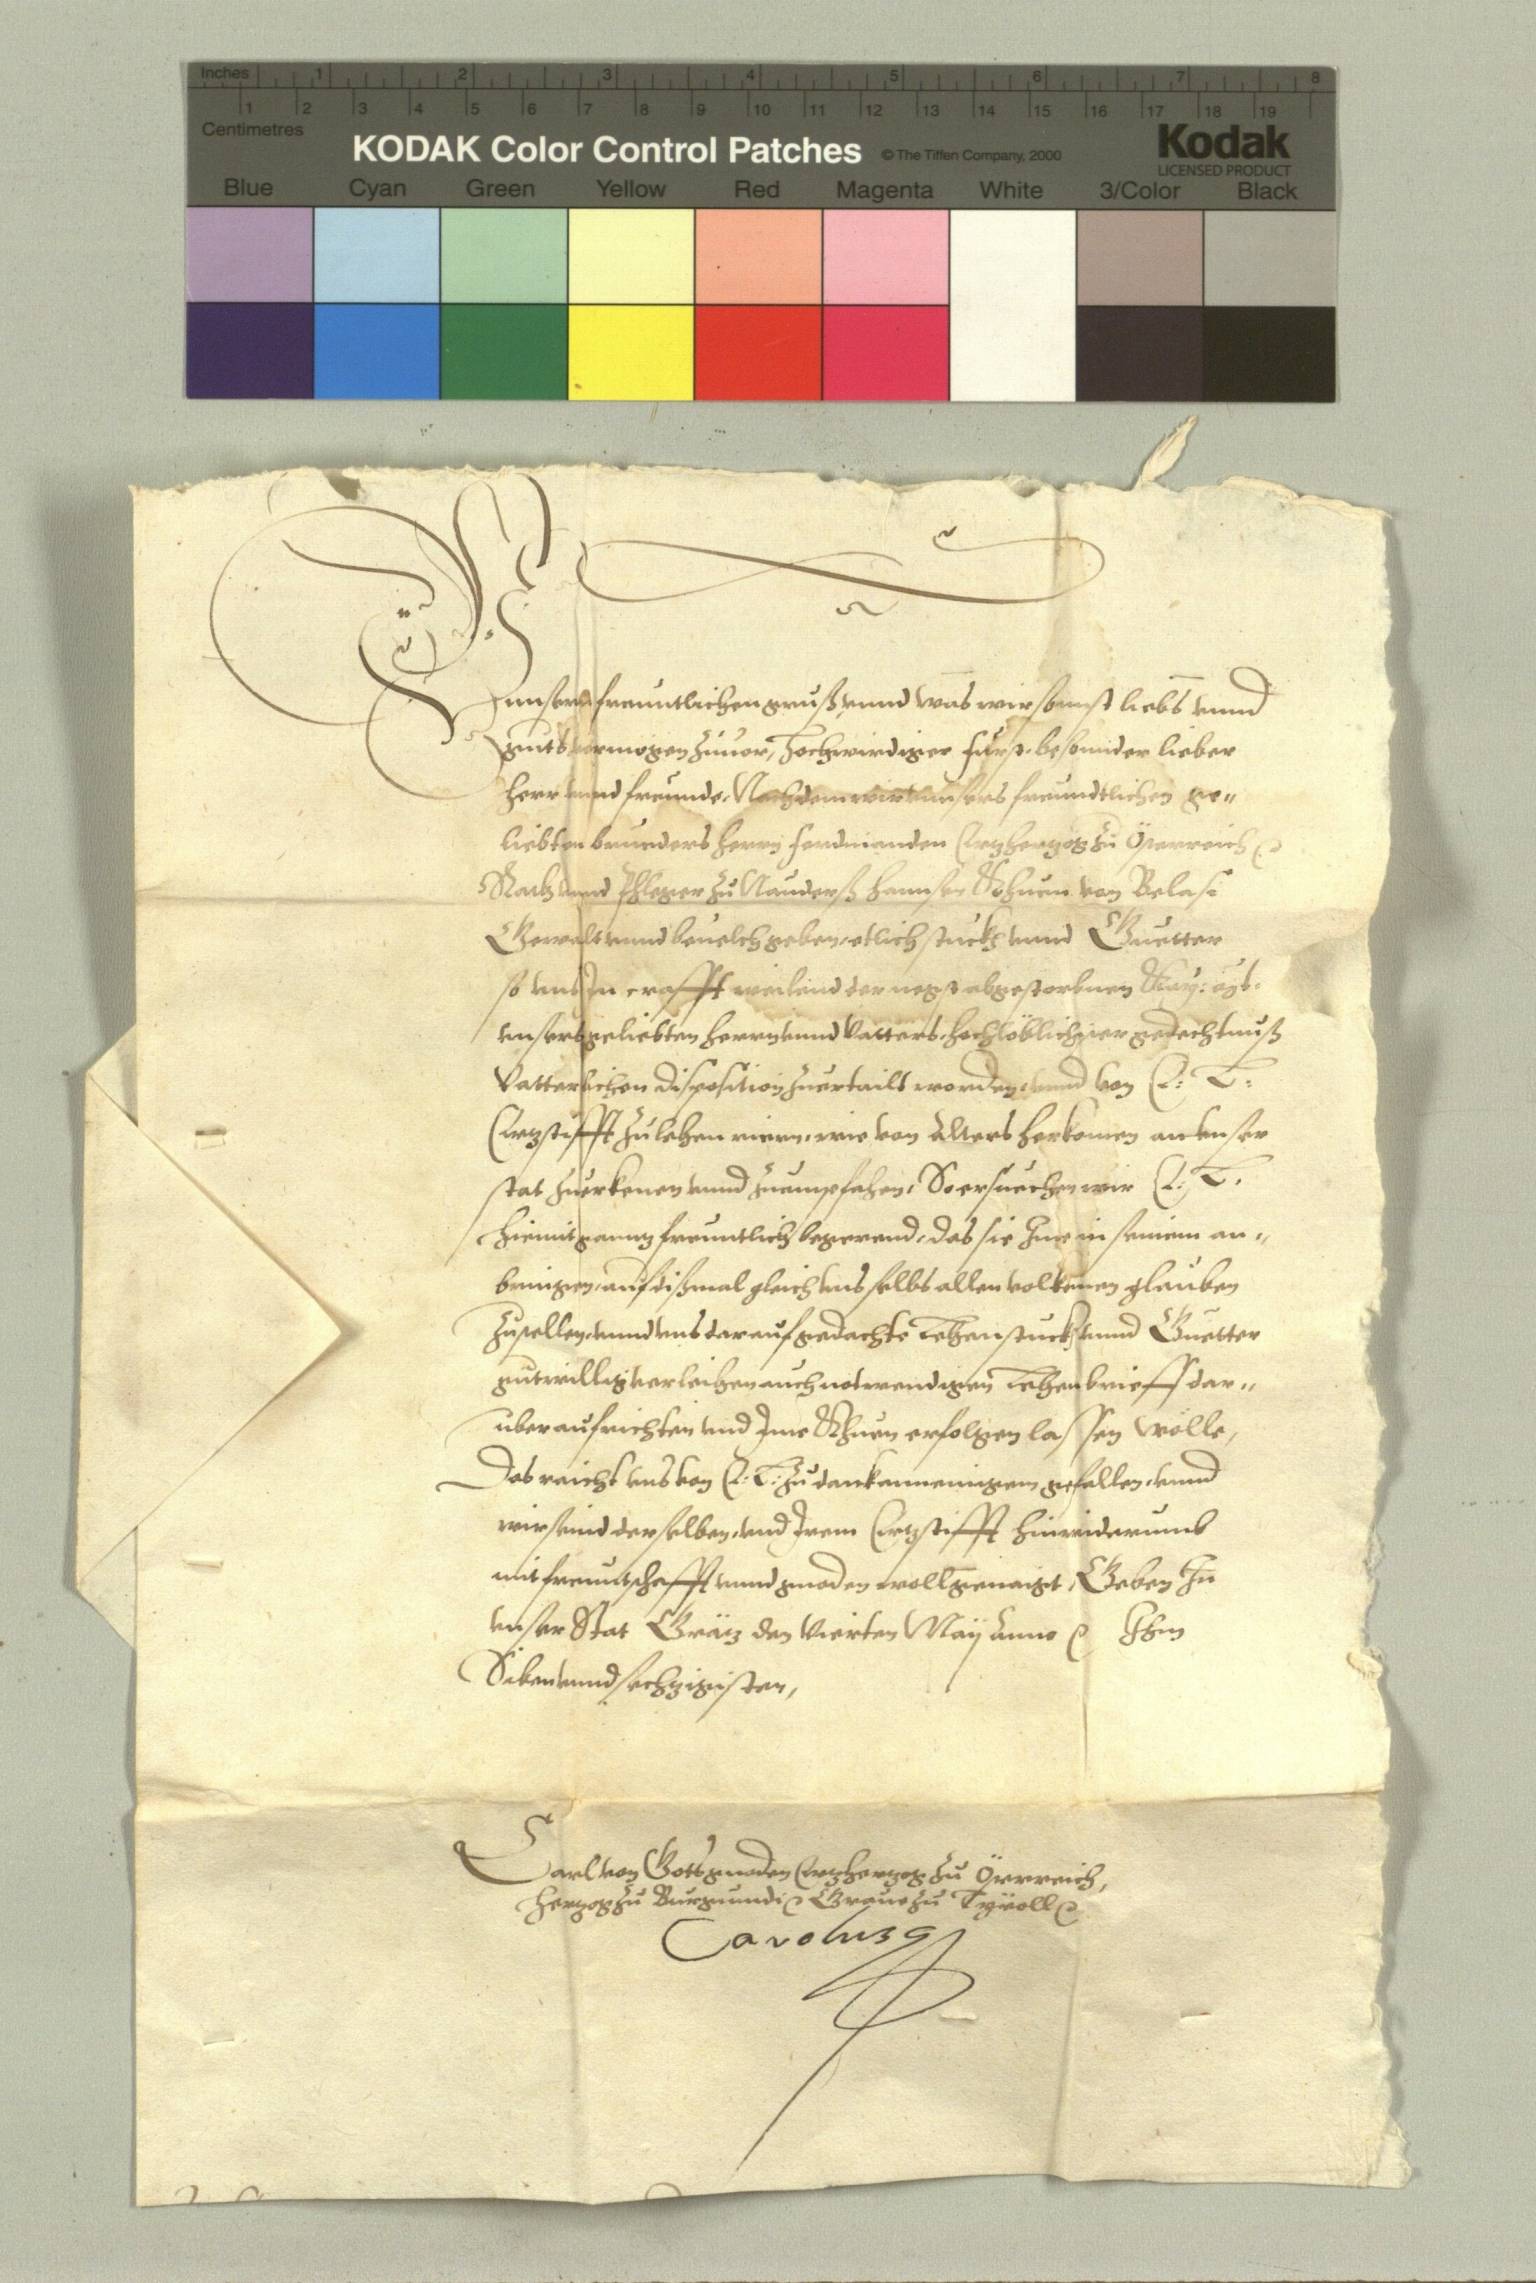 Inches 1 2 3 4 5 6 7 8
1 2 3 4 5 6 7 8 9 10 11 12 13 14 15 16 17 18 19
Centimetres
KODAK Color Control Patches © The Tiffen Company, 2000 Kodak
LICENSED PRODUCT
Blue Cyan Green Yellow Red Magenta White 3/Color Black
unsern freuntlichen grueß unnd was wir sonnst liebs unnd
guts vermogen zuuor, Hochwirdiger Fürst besonnder lieber
Herr unnd freunde, Nachdem wir unnsers freundtlichen ge„
liebten brueders Herrn Ferdinanden Ertzhertzog zu Österreich
Rath unnd Phleger zu Nauderß Hannsen Khuen von Belasi
Gewalt unnd beuelch geben, etlich stuckh unnd Guetter
so uns In crafft weilend der negst abgestorbnen Kay: Mt:
unsers geliebten Herrn unnd Vatters hochlöblichister gedechtnuß
Vatterlichen disposition zuertailt worden, unnd von E: L:
Ertzstifft zu lehen rüern, wie von alters herkomen an unser
stat zuerkenen unnd zuempfahen, So ersuechen wir E: L:
hiemit ganntz freuntlich begerend, das sie Ime in seinem an„
bringen, auf dißmal gleich uns selbs allen volkumen glauben
zustellen, unnd uns darauf gedachte Lehenstuckh unnd Guetter
guetwillig verleihen auch notwendigen Lehenbrieff dar„
über aufrichten und Ime Khuen erfolgen lassen wölle,
Das raicht uns von E: L: zu dankannemigem gefallen, unnd
wir seind derselben, und Irem Ertzstifft hinwiderumb
mit freuntschafft unnd gnaden wolgenaigt, Geben In
unser Stat Grätz den Vierten May Anno Im
Siben unnd sechzigisten,
Carl von Gots gnaden Ertzhertzog zu Österreich,
Hertzog zu Burgundi Graue zu Tyroll
Carolus